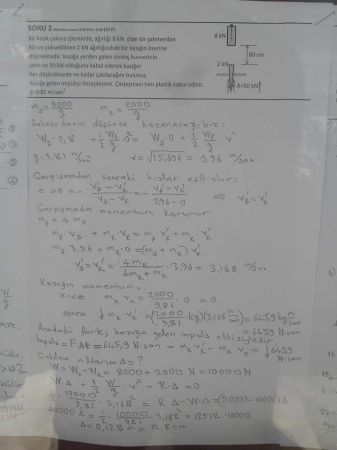 SORU 2
Bir kazık çakma işleminde, ağırlığı 8 kN olan bir şahmerdan
80 cm yükseklikten 2 kN ağırlığındaki bir kazığın üzerine
düşmektedir. Kazığa yerden gelen direnç kuvvetinin
sabit ve 50 kN olduğunu kabul ederek kazığın
her düşürülmede ne kadar çakılacağını bulunuz.
Kazığa gelen impulsu hesaplayınız. Çarpışmayı tam plastik kabul ediniz.
g=9.81 m/san²
8 kN
80 cm
2 kN
R=50 kN
m_ş = 8000/g   m_k = 2000/g
düşünce kazanacağı hız:
W_ş·0,8 + 1/2 W_ş/g·0² = W_ş·0 + 1/2 W_ş/g·v²
g=9.81 m/s²   v=√15.696 = 3.96 m/san
Çarpışmadan sonraki hızlar eşit olur.
e=0=- (v_ş'-v_k')/(v_ş-v_k) = - (v_ş'-v_k')/(3.96-0) ⇒ v_ş'=v_k'
Çarpışmada momentum korunur
m_ş = 4 m_k
m_ş·v_ş + m_k·v_k = m_ş·v_ş' + m_k·v_k'
m_ş·3.96 + m_k·0 = (m_ş+m_k) v_k'
v_ş'=v_k' = 4m_k/(4m_k+m_k)·3.96 = 3,168 m/san
Kazığın momentumu:
önce m_k v_k = 2000/9,81·0 = 0
sonra ↓ m_k·v_k' = (2000/9,81 kg)(3,168 m/san) = 645,9 kg m/san
= 645,9 N·san
Aradaki fark kazığa gelen impuls etkisiyledir.
Impuls = F·Δt = 645,9 N·san = m_k·v_k' - m_k v_k = ↓ 645,9 N·san
Çakılma miktarı Δ = ?
W = W_ş + W_k = 8000 + 2000 N = 10000 N
W·Δ + 1/2 W/g·v² - R·Δ = 0
1/2 10000/9,81·3,168² = R·Δ - W·Δ = (50000-10000)Δ
40000 Δ = 1/2·10000/9,81·3,168²
Δ = 0,128 m =